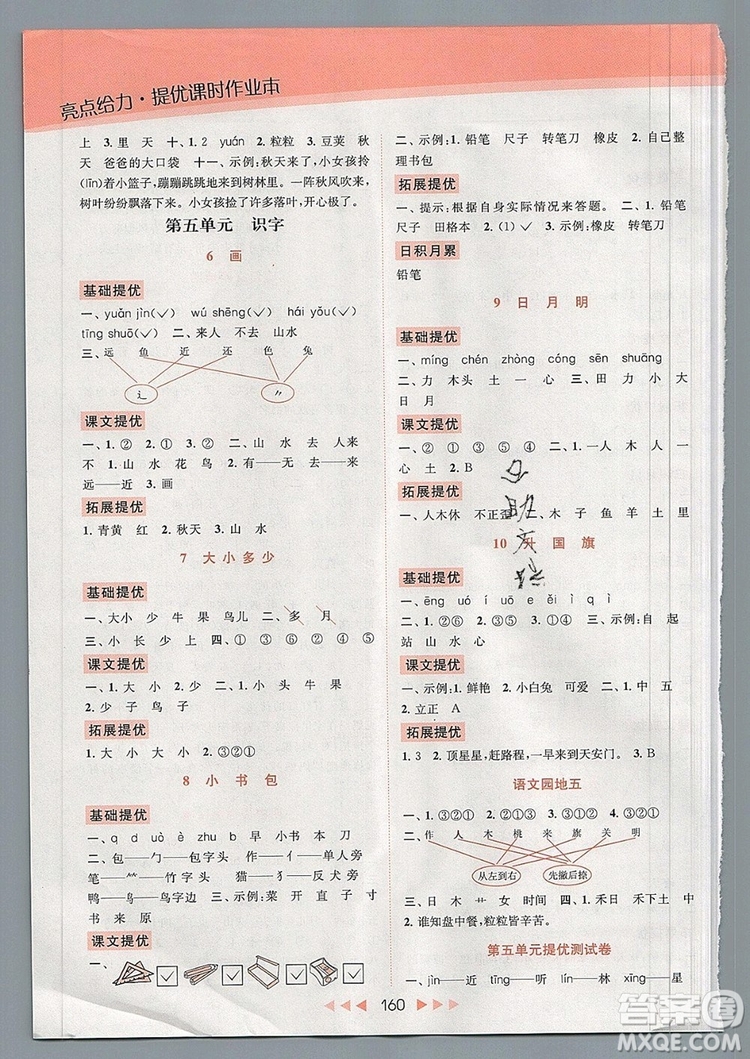 亮点给力·提优课时作业本
上 3.里 天 十、1.2 yuán 2.粒粒 3.豆荚 秋
天 爸爸的大口袋 十一、示例:秋天来了,小女孩拎
(līn)着小篮子,蹦蹦跳跳地来到树林里。一阵秋风吹来,
树叶纷纷飘落下来。小女孩捡了许多落叶,开心极了。
第五单元 识字
6 画
基础提优
一、yuǎn jìn(✓) wú shēng(✓) hái yǒu(✓)
tīng shuō(✓) 二、来人 不去 山水
三、远 鱼 近 还 色 兔
辶 ⺈
课文提优
一、1.② 2.① 3.② 二、山 水 去 人来
不 1.山水花鸟 2.有——无 来——去
远——近 3.画
拓展提优
1.青黄 红 2.秋天 3.山 水
7 大小多少
基础提优
一、大小 少 牛 果 鸟儿 二、多 月
三、小 长 少 上 四、① ③ ⑥ ② ④ ⑤
课文提优
一、1.大 小 2.多 少 二、1.大 小 牛 果
2.少 子 鸟子
拓展提优
1.大 小 大 小 2.③②①
8 小书包
基础提优
一、q d uò è zhu b 早 小 书 本 刀
二、包——勹——包字头 作——亻——单人旁
笔——⺮——竹字头 猫——犭——反犬旁
鸭——鸟——鸟字边 三、示例:菜 开 直 子 寸
书 来 原
课文提优
一、
二、示例:1.铅笔 尺子 转笔刀 橡皮 2.自己整
理书包
拓展提优
一、提示:根据自身实际情况来答题。 二、1.铅笔
尺子 田格本 2.(1)✓ 3.示例:橡皮 转笔刀
日积月累
铅笔
9 日月明
基础提优
一、míng chén zhòng cóng sēn shuāng
二、力 木 头 土 一 心 三、田 力 小 大
日 月
课文提优
一、② ① ③ ⑤ ④ 二、1.一人 木 人 一
心 土 2.B
拓展提优
一、人木休 不正歪 二、木 子 鱼 羊 土 里
10 升国旗
基础提优
一、ēng uó í uǒ e ěi q ì q ì
二、1.①⑥ 2.③⑤ 3.②④ 三、示例:自 起
站 山 水 心
课文提优
一、示例:鲜艳 2.小白兔 可爱 二、1.国
2.立正 A
拓展提优
1.3 2.顶星星,赶路程,一早来到天安门。 3.B
语文园地五
一、1.③②① 2.③②① 3.②③①
二、作 人 木 桃 来 旗 关 明
从左到右 先撇后捺
三、日 木 艹 女 时间 四、1.禾日 禾火
2.谁知盘中餐,粒粒皆辛苦。
第五单元提优测试卷
一、jìn——近 tīng——听 lín——林 xīng——星
160
答案圈
MXQE.COM